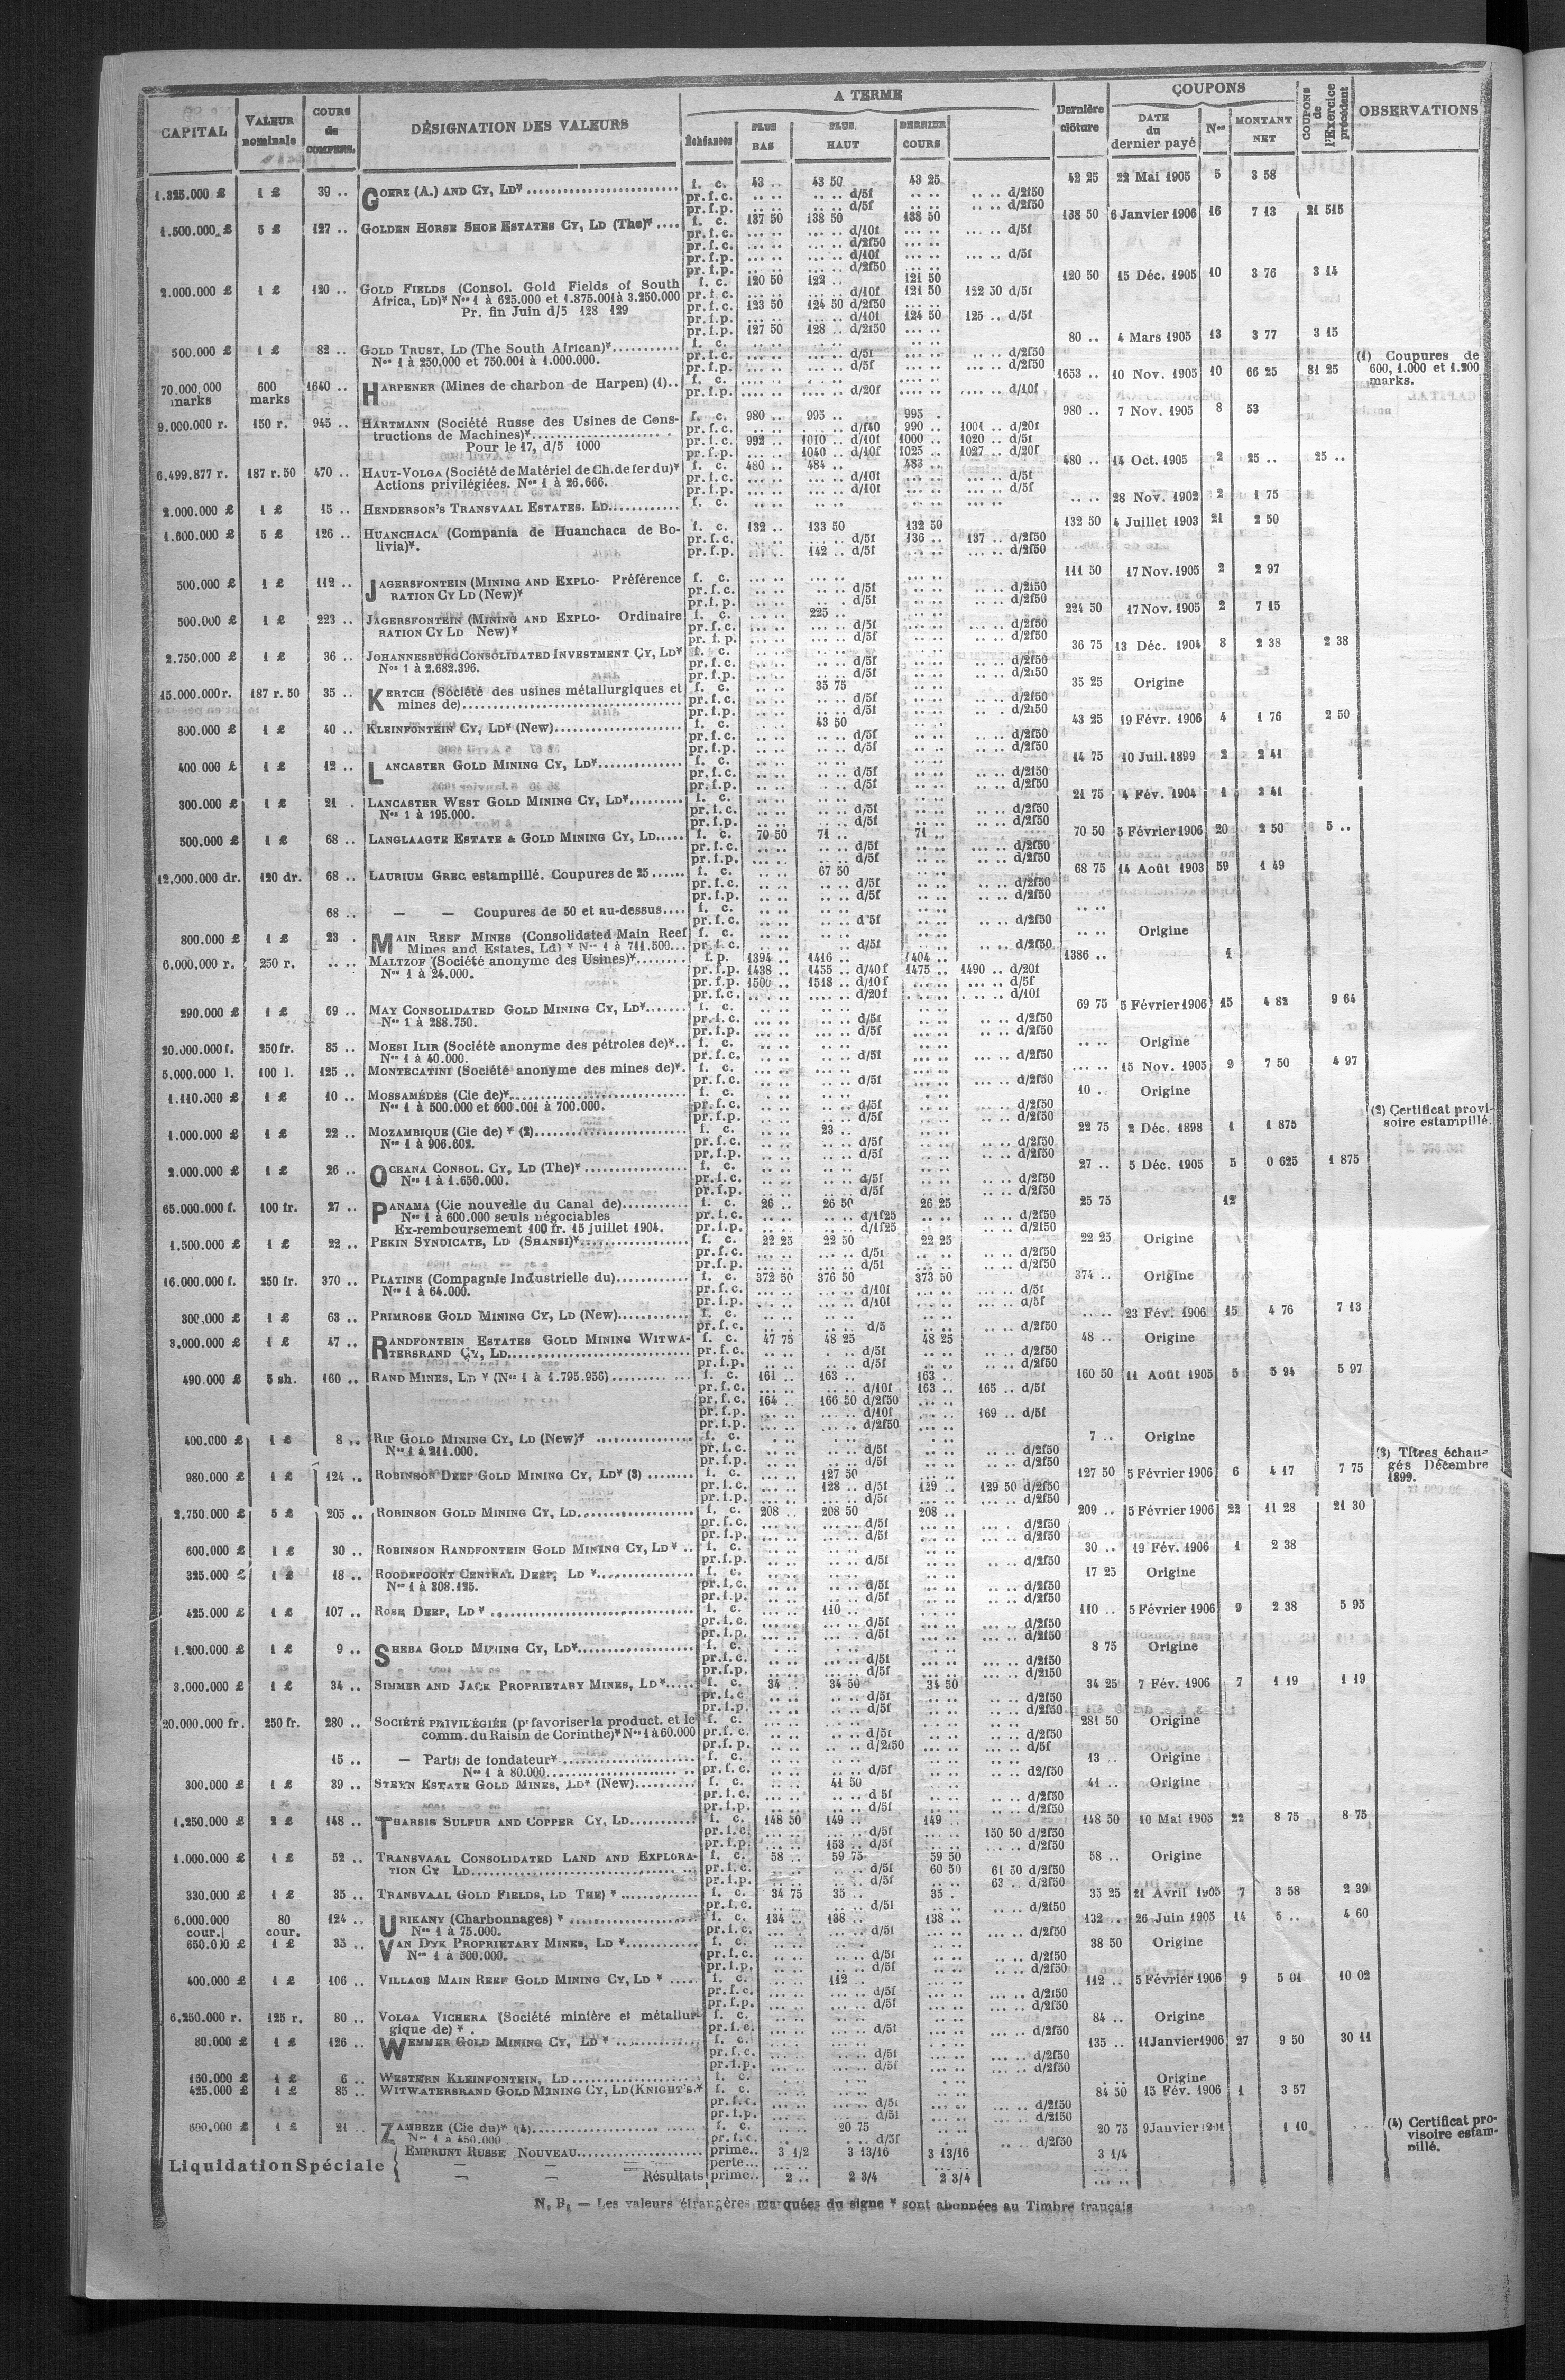 CAPITAL | VALEUR nominale | COURS de COMPENS. | DÉSIGNATION DES VALEURS | A TERME | Échéances | PLUS BAS | PLUS HAUT | DERNIER COURS | Dernière clôture | COUPONS | DATE du dernier payé | Nos | MONTANT NET | COUPONS de l'Exercice précédent | OBSERVATIONS
1.325.000 £ 1 £ 39 .. GOERZ (A.) AND CY, LD* f. c. 43 .. 43 50 43 25 42 25 22 Mai 1905 5 3 58
pr. f. c. .. .. .. .. d/5f .. .. .. .. d/2f50
pr. f. p. .. .. .. .. d/5f .. .. .. .. d/2f50
1.500.000 £ 5 £ 127 .. GOLDEN HORSE SHOE ESTATES CY, LD (The)* f. c. 137 50 138 50 138 50 138 50 6 Janvier 1906 16 7 13 21 515
pr. f. c. d/10f d/5f
pr. f. c. d/2f50
pr. f. p. d/10f d/5f
pr. f. p. d/2f50
2.000.000 £ 1 £ 120 .. GOLD FIELDS (Consol. Gold Fields of South f. c. 120 50 122 .. 121 50 120 50 15 Déc. 1905 10 3 76 3 14
Africa, LD)* Nos 1 à 625.000 et 1.875.001 à 3.250.000 pr. f. c. d/10f 121 50 122 50 d/5f
Pr. fin Juin d/5 128 129 pr. f. c. 123 50 124 50 d/2f50
pr. f. p. d/10f 124 50 125 .. d/5f
pr. f. p. 127 50 128 .. d/2f50
500.000 £ 1 £ 82 .. GOLD TRUST, LD (The South African)* f. c. 80 .. 4 Mars 1905 13 3 77 3 15
Nos 1 à 250.000 et 750.001 à 1.000.000. pr. f. c. d/5f d/2f50
pr. f. p. d/5f d/2f50
(1) Coupures de 600, 1.000 et 1.200 marks.
70.000.000 marks 600 marks 1640 .. HARPENER (Mines de charbon de Harpen) (1) f. c. 1653 .. 10 Nov. 1905 10 66 25 81 25
pr. f. p. d/20f d/10f
9.000.000 r. 150 r. 945 .. HARTMANN (Société Russe des Usines de Cons- f. c. 980 .. 995 .. 995 . 980 .. 7 Nov. 1905 8 53
tructions de Machines)* pr. f. c. d/f40 990 .. 1001 .. d/20f
Pour le 17, d/5 1000 pr. f. c. 992 .. 1010 .. d/10f 1000 .. 1020 .. d/5f
pr. f. p. 1040 .. d/10f 1025 .. 1027 .. d/20f
6.499.877 r. 187 r. 50 470 .. HAUT-VOLGA (Société de Matériel de Ch. de fer du)* f. c. 480 .. 484 .. 483 .. 480 .. 14 Oct. 1905 2 25 .. 25 ..
Actions privilégiées. Nos 1 à 26.666. pr. f. c. d/10f d/5f
pr. f. p. d/10f d/5f
2.000.000 £ 1 £ 15 .. HENDERSON'S TRANSVAAL ESTATES, LD f. c. 28 Nov. 1902 2 1 75
1.600.000 £ 5 £ 126 .. HUANCHACA (Compania de Huanchaca de Bo- f. c. 132 .. 133 50 132 50 132 50 4 Juillet 1903 21 2 50
livia)*. pr. f. c. d/5f 136 .. 137 .. d/2f50
pr. f. p. 142 .. d/5f d/2f50
500.000 £ 1 £ 112 .. JAGERSFONTEIN (MINING AND EXPLO- Préférence f. c. 111 50 17 Nov. 1905 2 2 97
RATION CY LD (New)* pr. f. c. d/5f d/2f50
pr. f. p. d/5f d/2f50
500.000 £ 1 £ 223 .. JAGERSFONTEIN (MINING AND EXPLO- Ordinaire f. c. 225 .. 224 50 17 Nov. 1905 2 7 15
RATION CY LD New)* pr. f. c. d/5f d/2f50
pr. f. p. d/5f d/2f50
2.750.000 £ 1 £ 36 .. JOHANNESBURG CONSOLIDATED INVESTMENT CY, LD* f. c. 36 75 13 Déc. 1904 8 2 38 2 38
Nos 1 à 2.682.396. pr. f. c. d/5f d/2f50
pr. f. p. d/5f d/2f50
15.000.000 r. 187 r. 50 35 .. KERTCH (Société des usines métallurgiques et f. c. 35 75 35 25 Origine
mines de) pr. f. c. d/5f d/2f50
pr. f. p. d/5f d/2f50
800.000 £ 1 £ 40 .. KLEINFONTEIN CY, LD* (New) f. c. 43 50 43 25 19 Févr. 1906 4 1 76 2 50
pr. f. c. d/5f d/2f50
pr. f. p. d/5f d/2f50
400.000 £ 1 £ 12 .. LANCASTER GOLD MINING CY, LD* f. c. 14 75 10 Juil. 1899 2 2 41
pr. f. c. d/5f d/2f50
pr. f. p. d/5f d/2f50
300.000 £ 1 £ 21 .. LANCASTER WEST GOLD MINING CY, LD* f. c. 21 75 4 Fév. 1904 1 2 41
Nos 1 à 195.000. pr. f. c. d/5f d/2f50
pr. f. p. d/5f d/2f50
500.000 £ 1 £ 68 .. LANGLAAGTE ESTATE & GOLD MINING CY, LD f. c. 70 50 71 .. 71 .. 70 50 5 Février 1906 20 2 50 5 ..
pr. f. c. d/5f d/2f50
pr. f. p. d/5f d/2f50
12.000.000 dr. 120 dr. 68 .. LAURIUM GREC estampillé. Coupures de 25 f. c. 67 50 68 75 14 Août 1903 59 1 49
pr. f. c. d/5f d/2f50
pr. f. p. d/5f d/2f50
68 .. — — Coupures de 50 et au-dessus f. c.
pr. f. c. d/5f d/2f50
800.000 £ 1 £ 23 . MAIN REEF MINES (Consolidated Main Reef f. c. Origine
Mines and Estates, Ld) * Nos 1 à 711.500 pr. f. c. d/5f d/2f50
6.000.000 r. 250 r. MALTZOF (Société anonyme des Usines)* f. p. 1394 .. 1416 .. 1404 .. 1386 .. 1
Nos 1 à 24.000. pr. f. p. 1438 .. 1455 .. d/40f 1475 .. 1490 .. d/20f
pr. f. p. 1500 .. 1518 .. d/10f d/5f
pr. f. c. d/20f d/10f
290.000 £ 1 £ 69 .. MAY CONSOLIDATED GOLD MINING CY, LD* f. c. 69 75 5 Février 1906 15 4 82 9 64
Nos 1 à 288.750. pr. f. c. d/5f d/2f50
pr. f. p. d/5f d/2f50
20.000.000 f. 250 fr. 85 .. MOESI ILIR (Société anonyme des pétroles de)* f. c. Origine
Nos 1 à 40.000. pr. f. c. d/5f d/2f50
5.000.000 l. 100 l. 125 .. MONTECATINI (Société anonyme des mines de)* f. c. 15 Nov. 1905 9 7 50 4 97
pr. f. c. d/5f d/2f50
1.110.000 £ 1 £ 10 .. MOSSAMÉDÈS (Cie de)* f. c. 10 .. Origine
Nos 1 à 500.000 et 600.001 à 700.000. pr. f. c. d/5f d/2f50
pr. f. p. d/5f d/2f50
(2) Certificat provi- soire estampillé.
1.000.000 £ 1 £ 22 .. MOZAMBIQUE (Cie de) * (2) f. c. 23 .. 22 75 2 Déc. 1898 1 1 875
Nos 1 à 906.602. pr. f. c. d/5f d/2f50
pr. f. p. d/5f d/2f50
2.000.000 £ 1 £ 26 .. OCEANA CONSOL. CY, LD (The)* f. c. 27 .. 5 Déc. 1905 5 0 625 1 875
Nos 1 à 1.650.000. pr. f. c. d/5f d/2f50
pr. f. p. d/5f d/2f50
65.000.000 f. 100 fr. 27 .. PANAMA (Cie nouvelle du Canal de) f. c. 26 .. 26 50 26 25 25 75 12
Nos 1 à 600.000 seuls négociables pr. f. c. d/1f25 d/2f50
Ex-remboursement 100 fr. 15 juillet 1904. pr. f. p. d/1f25 d/2f50
1.500.000 £ 1 £ 22 .. PEKIN SYNDICATE, LD (SHANSI)* f. c. 22 25 22 50 22 25 22 25 Origine
pr. f. c. d/5f d/2f50
pr. f. p. d/5f d/2f50
16.000.000 f. 250 fr. 370 .. PLATINE (Compagnie Industrielle du) f. c. 372 50 376 50 373 50 374 .. Origine
Nos 1 à 64.000. pr. f. c. d/10f d/5f
pr. f. p. d/10f d/5f
300.000 £ 1 £ 63 .. PRIMROSE GOLD MINING CY, LD (New) f. c. 23 Fév. 1906 15 4 76 7 13
pr. f. c. d/5 d/2f50
3.000.000 £ 1 £ 47 .. RANDFONTEIN ESTATES GOLD MINING WITWA- f. c. 47 75 48 25 48 25 48 .. Origine
TERSRAND CY, LD pr. f. c. d/5f d/2f50
pr. f. p. d/5f d/2f50
490.000 £ 5 sh. 160 .. RAND MINES, LD * (Nos 1 à 1.795.956) f. c. 161 .. 163 .. 163 .. 160 50 11 Août 1905 5 5 94 5 97
pr. f. c. d/10f 163 .. 165 .. d/5f
pr. f. c. 164 .. 166 50 d/2f50
pr. f. p. d/10f 169 .. d/5f
pr. f. p. d/2f50
400.000 £ 1 £ 8 .. RIP GOLD MINING CY, LD (New)* f. c. 7 .. Origine
Nos 1 à 211.000. pr. f. c. d/5f d/2f50
pr. f. p. d/5f d/2f50
(3) Titres échan- gés Décembre 1899.
980.000 £ 1 £ 124 .. ROBINSON DEEP GOLD MINING CY, LD* (3) f. c. 127 50 127 50 5 Février 1906 6 4 17 7 75
pr. f. c. 128 .. d/5f 129 .. 129 50 d/2f50
pr. f. p. d/5f d/2f50
2.750.000 £ 5 £ 205 .. ROBINSON GOLD MINING CY, LD f. c. 208 .. 208 50 208 .. 209 .. 5 Février 1906 22 11 28 21 30
pr. f. c. d/5f d/2f50
pr. f. p. d/5f d/2f50
600.000 £ 1 £ 30 .. ROBINSON RANDFONTEIN GOLD MINING CY, LD * f. c. 30 .. 19 Fév. 1906 1 2 38
pr. f. p. d/5f d/2f50
325.000 £ 1 £ 18 .. ROODEPOORT CENTRAL DEEP, LD * f. c. 17 25 Origine
Nos 1 à 308.125. pr. f. c. d/5f d/2f50
pr. f. p. d/5f d/2f50
425.000 £ 1 £ 107 .. ROSE DEEP, LD * f. c. 110 .. 110 .. 5 Février 1906 9 2 38 5 95
pr. f. c. d/5f d/2f50
pr. f. p. d/5f d/2f50
1.200.000 £ 1 £ 9 .. SHEBA GOLD MINING CY, LD* f. c. 8 75 Origine
pr. f. c. d/5f d/2f50
pr. f. p. d/5f d/2f50
3.000.000 £ 1 £ 34 .. SIMMER AND JACK PROPRIETARY MINES, LD* f. c. 34 .. 34 50 34 50 34 25 7 Fév. 1906 7 1 19 1 19
pr. f. c. d/5f d/2f50
pr. f. p. d/5f d/2f50
20.000.000 fr. 250 fr. 280 .. SOCIÉTÉ PRIVILÉGIÉE (pr favoriser la product. et le f. c. 281 50 Origine
comm. du Raisin de Corinthe)* Nos 1 à 60.000 pr. f. c. d/5f d/2f50
pr. f. p. d/2f50 d/5f
15 .. — Parts de fondateur* f. c. 13 .. Origine
Nos 1 à 80.000 pr. f. c. d/5f d2/f50
300.000 £ 1 £ 39 .. STEYN ESTATE GOLD MINES, LD* (New) f. c. 41 50 41 .. Origine
pr. f. c. d 5f d/2f50
pr. f. p. d/5f d/2f50
1.250.000 £ 2 £ 148 .. THARSIS SULFUR AND COPPER CY, LD f. c. 148 50 149 .. 149 .. 148 50 10 Mai 1905 22 8 75 8 75
pr. f. c. d/5f 150 50 d/2f50
pr. f. p. 153 .. d/5f d/2f50
1.000.000 £ 1 £ 52 .. TRANSVAAL CONSOLIDATED LAND AND EXPLORA- f. c. 58 .. 59 75 59 50 58 .. Origine
TION CY LD pr. f. c. d/5f 60 50 61 50 d/2f50
pr. f. p. d/5f 63 .. d/2f50
330.000 £ 1 £ 35 .. TRANSVAAL GOLD FIELDS, LD THE) * f. c. 34 75 35 .. 35 . 35 25 21 Avril 1905 7 3 58 2 39
pr. f. c. d/5f d/2f50
6.000.000 cour. 80 cour. 124 .. URIKANY (Charbonnages) * f. c. 134 .. 138 .. 138 .. 132 .. 26 Juin 1905 14 5 .. 4 60
Nos 1 à 75.000. pr. f. c. d/5f d/2f50
650.000 £ 1 £ 35 .. VAN DYK PROPRIETARY MINES, LD * f. c. 38 50 Origine
Nos 1 à 500.000. pr. f. c. d/5f d/2f50
pr. f. p. d/5f d/2f50
400.000 £ 1 £ 106 .. VILLAGE MAIN REEF GOLD MINING CY, LD * f. c. 112 .. 112 .. 5 Février 1906 9 5 01 10 02
pr. f. c. d/5f d/2f50
pr. f. p. d/5f d/2f50
6.250.000 r. 125 r. 80 .. VOLGA VICHERA (Société minière et métallur- f. c. 84 .. Origine
gique de) * . pr. f. c. d/5f d/2f50
80.000 £ 1 £ 126 .. WEMMER GOLD MINING CY, LD * f. c. 135 .. 11 Janvier 1906 27 9 50 30 11
pr. f. c. d/5f d/2f50
pr. f. p. d/5f d/2f50
160.000 £ 1 £ 6 .. WESTERN KLEINFONTEIN, LD f. c. Origine
425.000 £ 1 £ 85 .. WITWATERSRAND GOLD MINING CY, LD (KNIGHT'S)* f. c. 84 50 15 Fév. 1906 1 3 57
pr. f. c. d/5f d/2f50
pr. f. p. d/5f d/2f50
600.000 £ 1 £ 21 .. ZAMBÈZE (Cie du)* (4) f. c. 20 75 20 75 9 Janvier 1 10
Nos 1 à 450.000 pr. f. c. d/5f d/2f50
(4) Certificat pro- visoire estam- pillé.
Liquidation Spéciale { EMPRUNT RUSSE NOUVEAU prime.. 3 1/2 3 13/16 3 13/16 3 1/4
— — perte...
— — Résultats prime.. 2 .. 2 3/4 2 3/4
N. B. — Les valeurs étrangères marquées du signe * sont abonnées au Timbre français